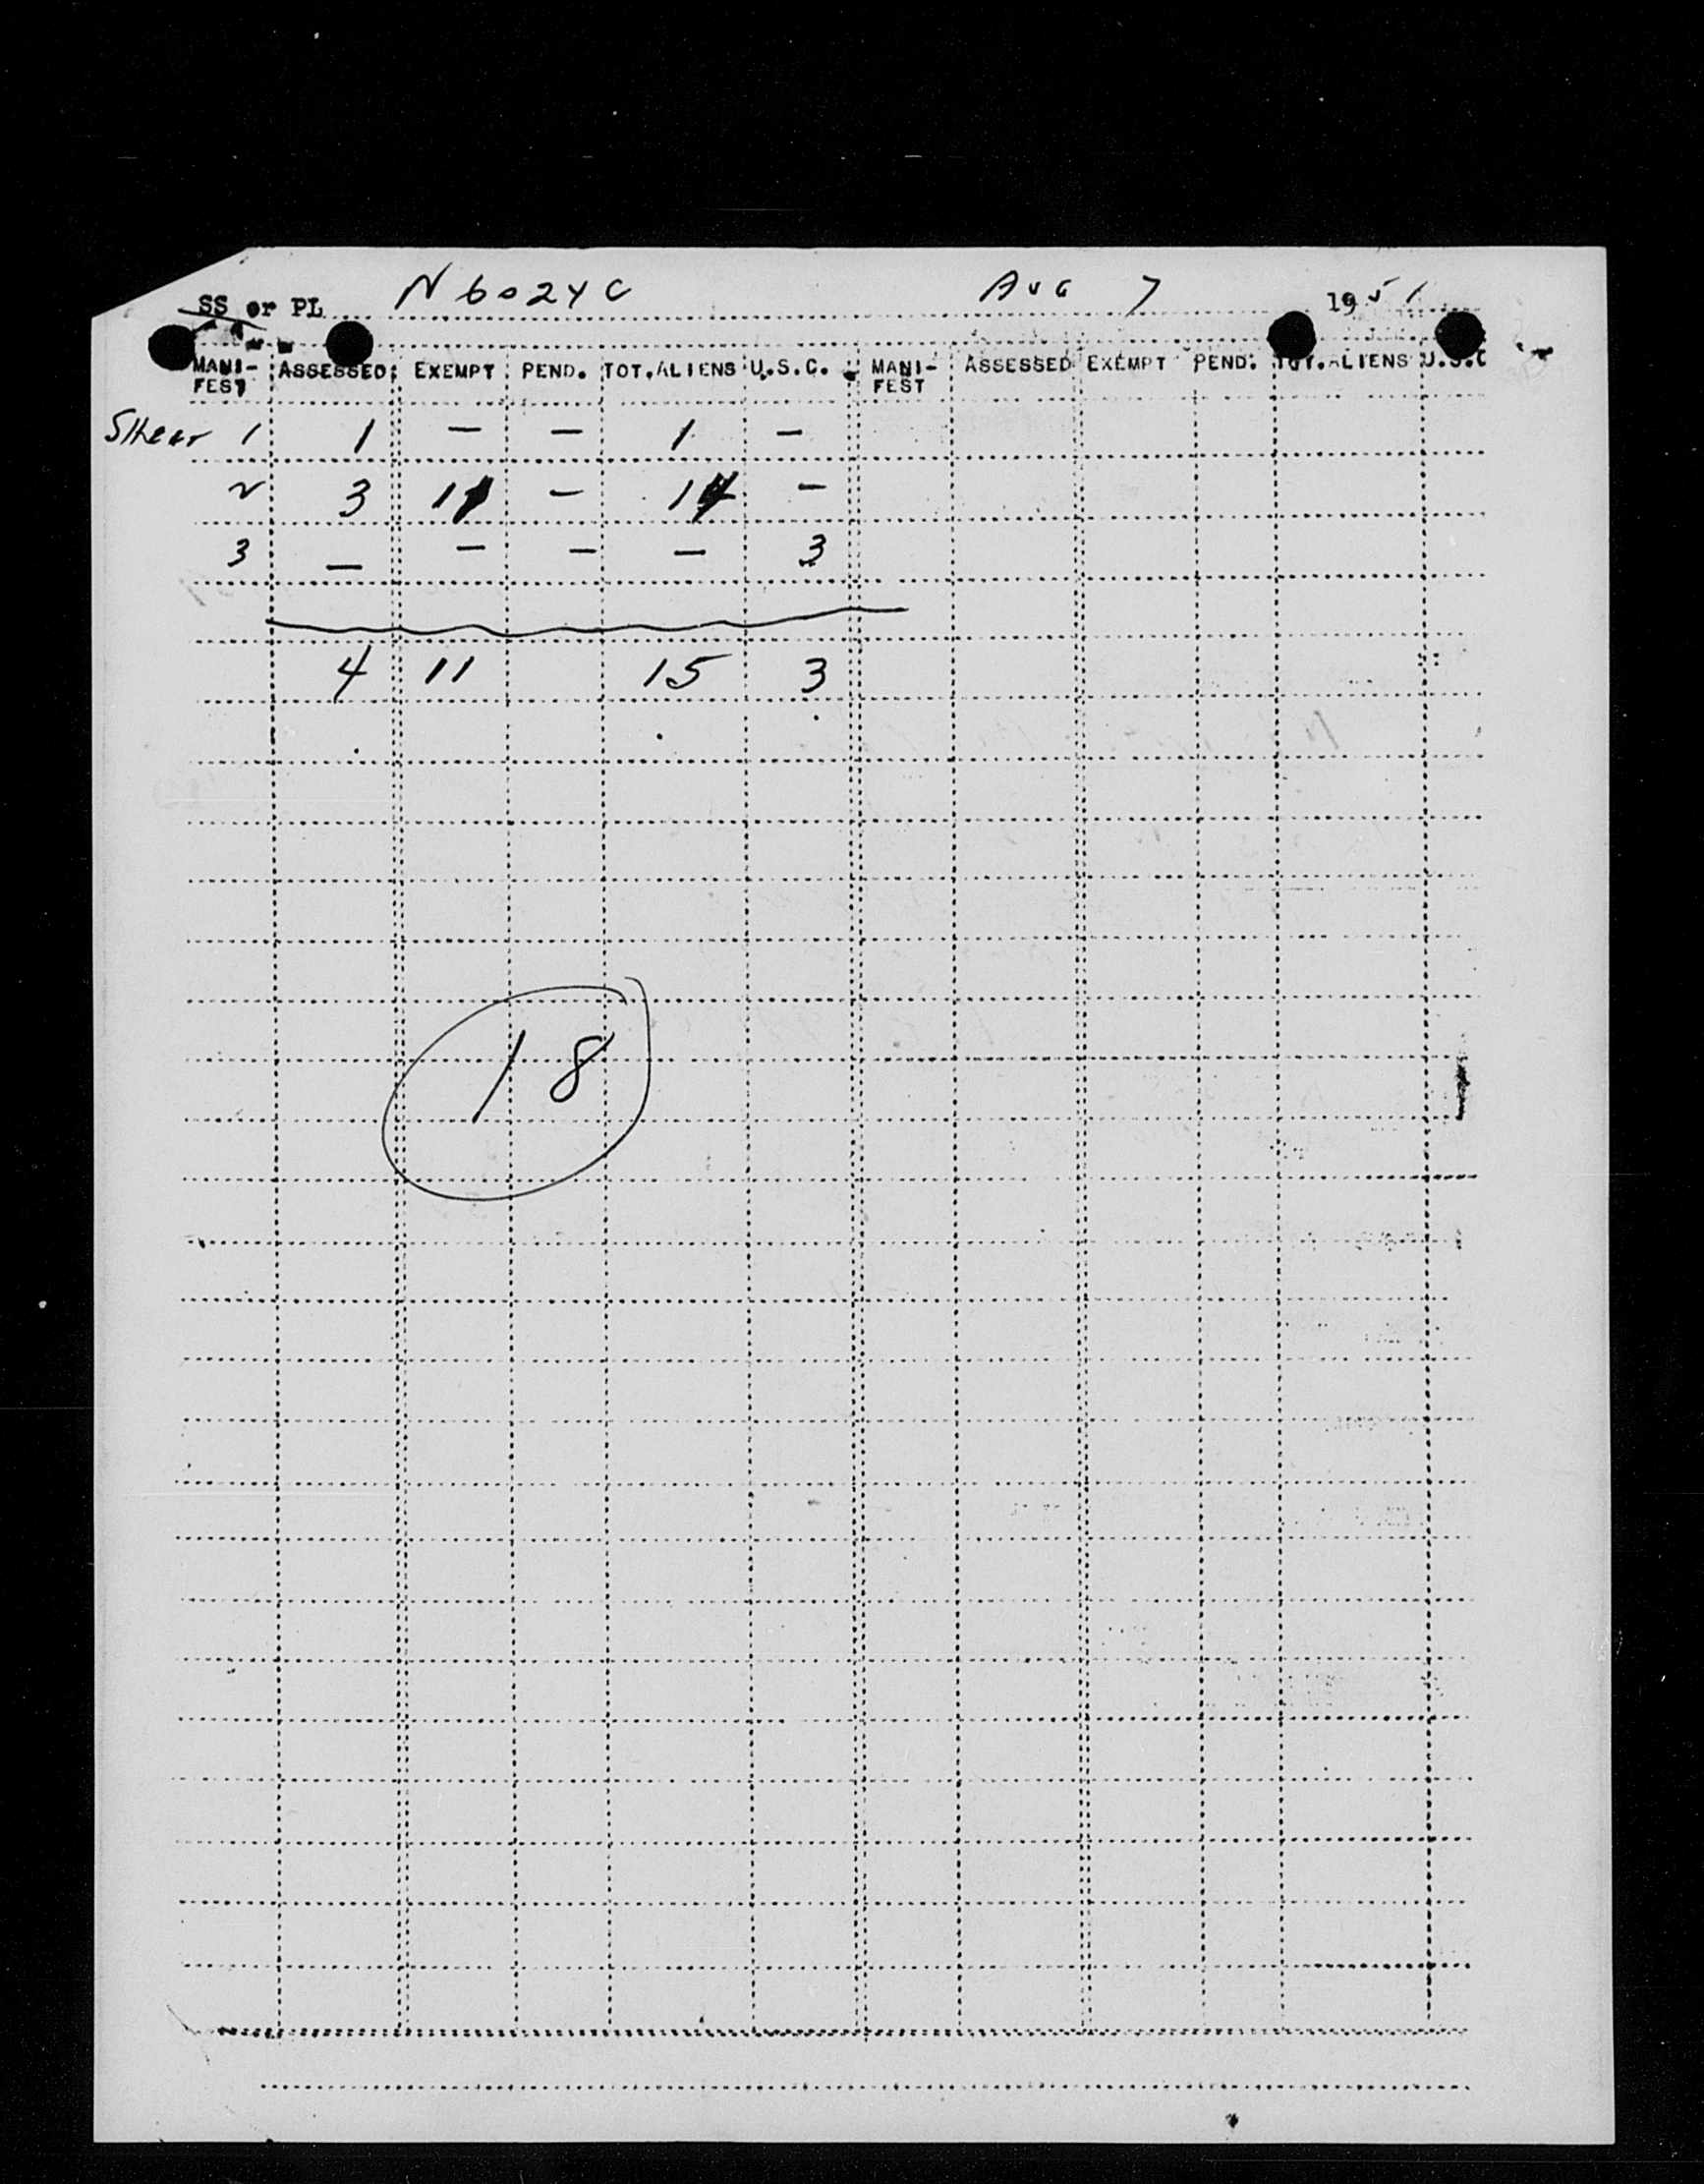 SS or PL N6024C AUG 7 1951
MANI-FEST ASSESSED EXEMPT PEND. TOT.ALIENS U.S.C. MANI-FEST ASSESSED EXEMPT PEND. TOT.ALIENS U.S.C
SHEET 1 1 — — 1 —
2 3 11 — 14 —
3 — — — — 3
4 11 15 3
18